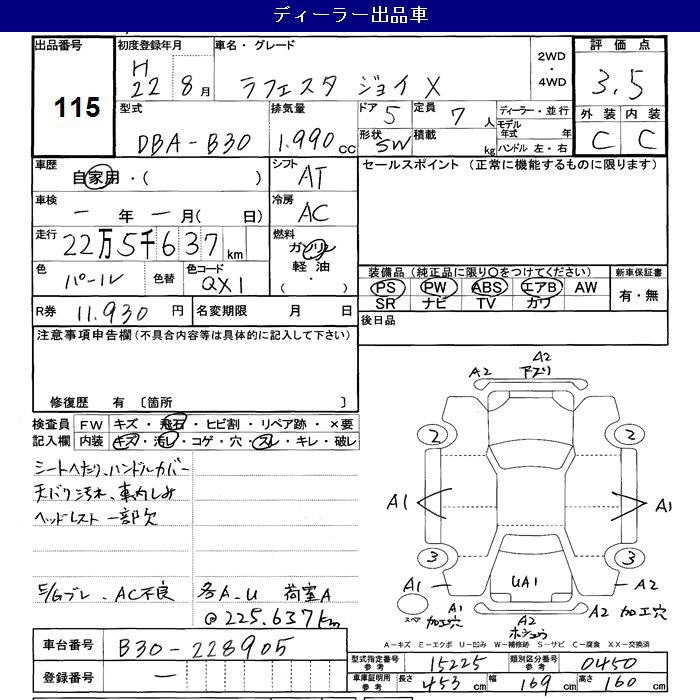 ディーラー出品車
出品番号 115
初度登録年月 H 22 8月
車名・グレード ラフェスタ ジョイ X
2WD・4WD
評価点 3.5
型式 DBA-B30
排気量 1.990cc
ドア 5
定員 7人
形状 SW
積載 kg
ディーラー・並行
モデル年式 年
ハンドル 左・右
外装 C
内装 C
車歴 自家用・( )
シフト AT
セールスポイント(正常に機能するものに限ります)
車検 一年一月( 日)
冷房 AC
走行 22万5千637km
燃料 ガソリン 軽油 ( ・ )
色 パール
色替
色コード QX1
装備品(純正品に限り○をつけてください)
PS PW ABS エアB AW
SR ナビ TV カワ
新車保証書 有・無
R券 11,930円
名変期限 月 日
後日品
注意事項申告欄(不具合内容等は具体的に記入して下さい)
修復歴 有 〔箇所 〕
検査員記入欄
FW キズ・飛石・ヒビ割・リペア跡・×要
内装 キズ・汚レ・コゲ・穴・スレ・キレ・破レ
シートへたり、ハンドルカバー
天ばり汚れ、車内しみ
ヘッドレスト一部欠
E/Gブレ、AC不良
各A.U 荷室A
@225.637km
A2
A2 アブリ A2
2 2
A1 A1
3 3
A1 UA1 A2
スペア A1 加工穴 A2 ホシュウ A2 加工穴
A-キズ E-エクボ U-凹み W-補修跡 S-サビ C-腐食 XX-交換済
車台番号 B30-228905
登録番号 一
型式指定番号 参考 15225
類別区分番号 参考 0450
車庫証明用 参考 長さ 453cm 幅 169cm 高さ 160cm